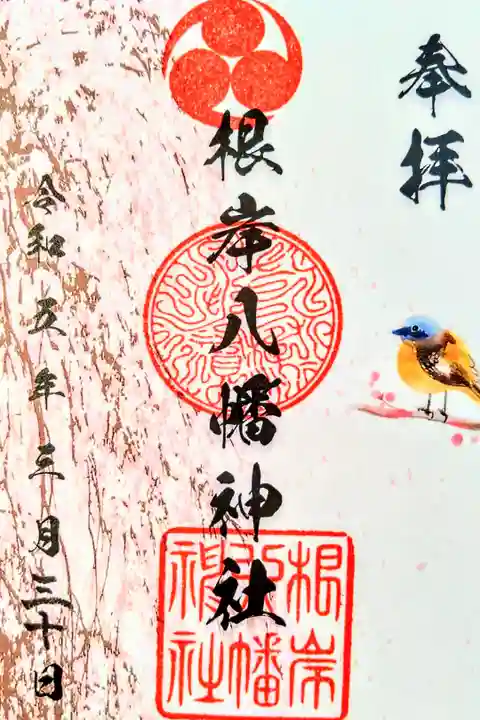 奉拝
根岸八幡神社
令和五年三月三十日
根岸
八幡
神社